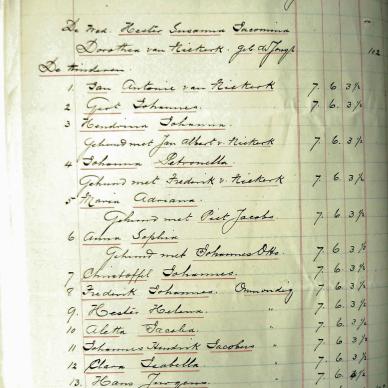 De Wed. Hester Susanna Jacomina
Dorothea van Niekerk. geb de Jongh 102
De kinderen.
1. Jan Antonie van Niekerk 7. 6. 3½
2. Gert Johannes. 7. 6. 3½
3 Hendrina Johanna.
Gehuwd met Jan Albert v. Niekerk 7. 6. 3½
4 Johanna Petronella
Gehuwd met Frederik v. Niekerk 7. 6. 3½
5 Maria Adriana.
Gehuwd met Piet Jacobs 7. 6. 3½
6 Anna Sophia
Gehuwd met Johannes Otto. 7. 6. 3½
7 Christoffel Johannes. 7. 6. 3½
8 Frederik Johannes. Onmondig 7. 6. 3½
9. Hester Helena " 7. 6. 3½
10 Aletta Jacoba " 7. 6. 3½
11 Johannes Hendrik Jacobus " 7. 6. 3½
12 Clara Isabella " 7. 6. 3½
13. Hans Jurgens " 7. 6.